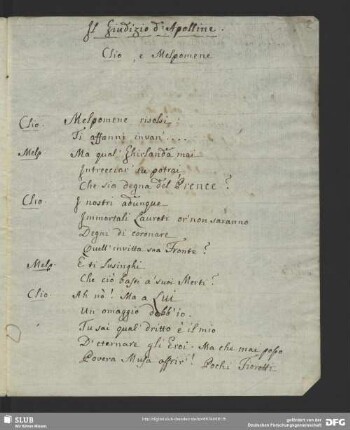 Il Giudizio d'Apolline.
Clio, e Melpomene
Clio Melpomene risolvi:
Ti affanni invan' ....
Melp Ma qual' Ghirlanda mai
Intrecciar tu potrai
Che sia degna del Prence?
Clio I nostri adunque
Immortali Laureti or' non saranno
Degni di coronare
Quell' invitta sua Fronte?
Melp E ti lusinghi
Che ciò basti a' suoi Merti?
Clio Ah nò! Ma a Lui
Un omaggio debb'io.
Tu sai qual' dritto è il mio
D'eternare gli Eroi. Ma che mai posso
Povera Musa offrir'! Pochi Fioretti
SLUB
Wir führen Wissen.
gefördert von der
Deutschen Forschungsgemeinschaft
DFG